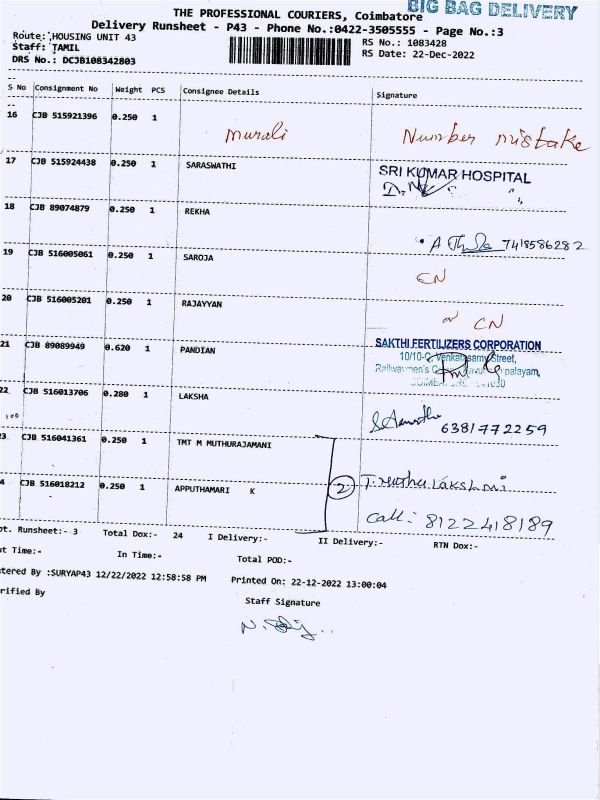 BIG BAG DELIVERY
THE PROFESSIONAL COURIERS, Coimbatore
Delivery Runsheet - P43 - Phone No.:0422-3505555 - Page No.:3
Route: HOUSING UNIT 43 RS No.: 1083428
Staff: TAMIL RS Date: 22-Dec-2022
DRS No.: DCJB108342803
S No Consignment No Weight PCS Consignee Details Signature
16 CJB 515921396 0.250 1 murali Number mistake
17 CJB 515924438 0.250 1 SARASWATHI SRI KUMAR HOSPITAL
18 CJB 89074879 0.250 1 REKHA
A 7418586282
19 CJB 516005061 0.250 1 SAROJA
CN
20 CJB 516005201 0.250 1 RAJAYYAN
CN
SAKTHI FERTILIZERS CORPORATION
21 CJB 89089949 0.620 1 PANDIAN 10/10-C, Venkatasamy Street,
22 CJB 516013706 0.280 1 LAKSHA
100 6381772259
3 CJB 516041361 0.250 1 TMT M MUTHURAJAMANI
4 CJB 516018212 0.250 1 APPUTHAMARI K 2
Call: 8122418189
pt. Runsheet:- 3 Total Dox:- 24 I Delivery:- II Delivery:- RTN Dox:-
ut Time:- In Time:- Total POD:-
tered By :SURYAP43 12/22/2022 12:58:58 PM Printed On: 22-12-2022 13:00:04
rified By Staff Signature